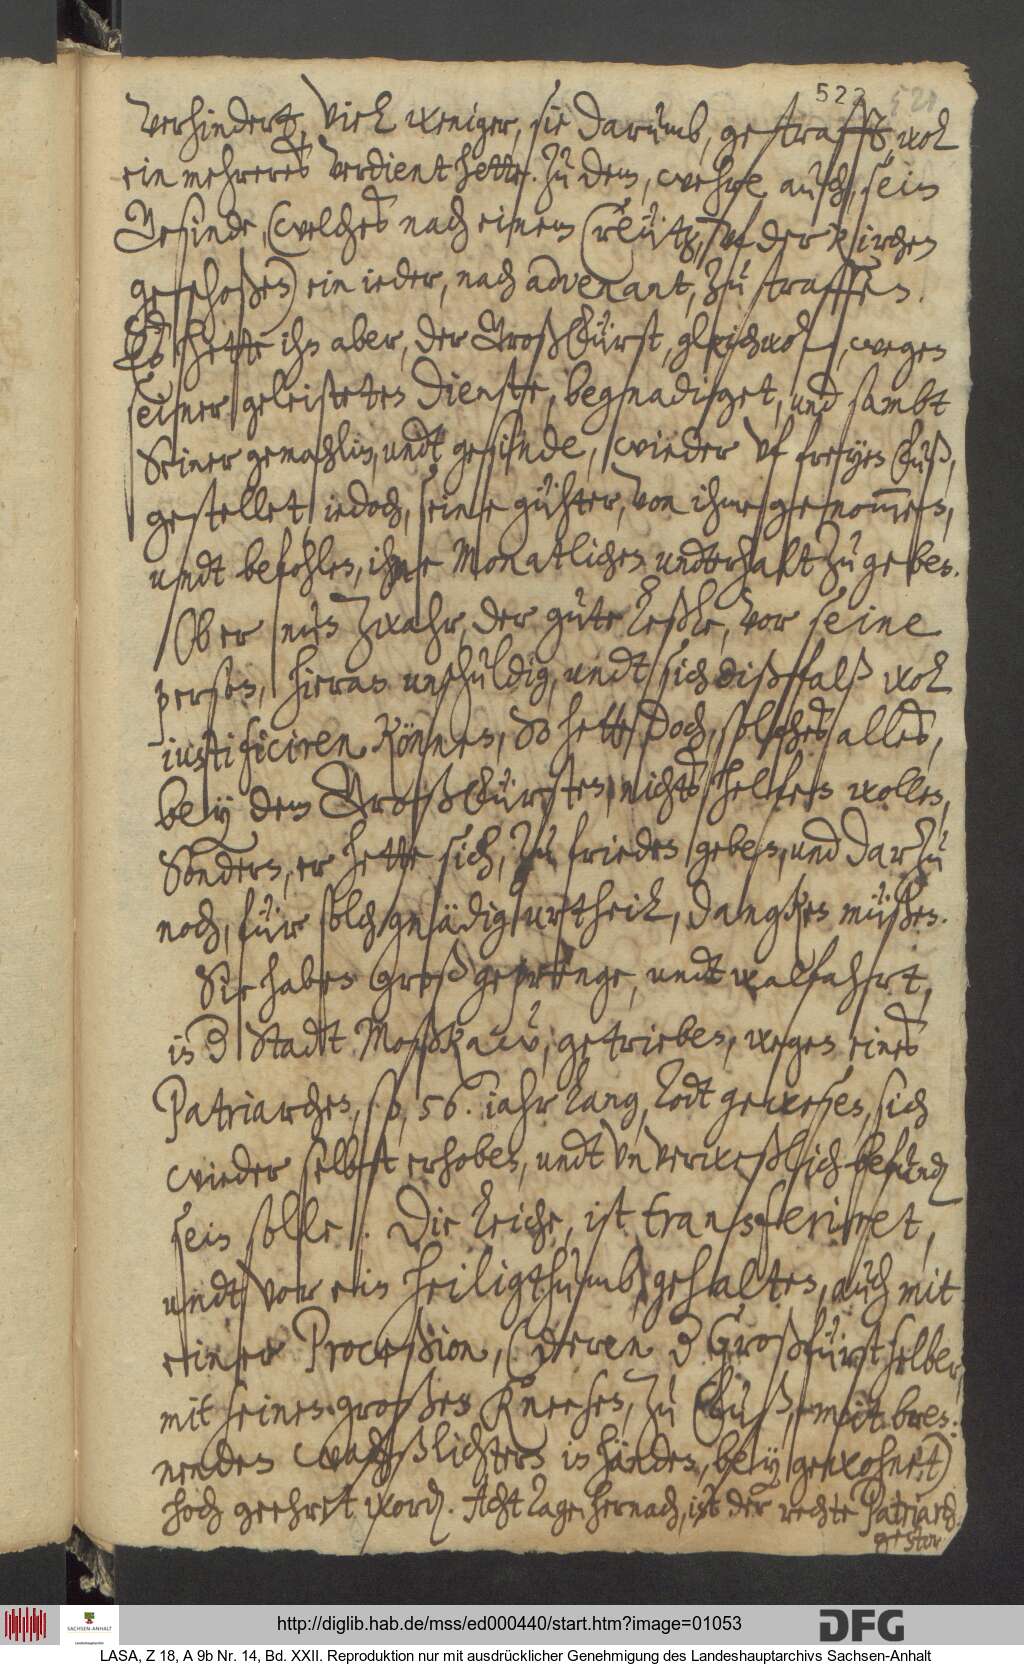 522 521
verhindert, viel weniger, sie darumb, gestrafft, wol
ein mehreres verdient hette. Zu dem, wehre auch, sein
Gesinde, (welches nach einem Creütz, uf der Kirchen
geschoßen) ein ieder, nach advenant, zu straffen.
Es hette ihn aber, der GroßFürst, gleichwol, wegen
seiner geleisteten Dienste, begnadiget, und sambt
Seiner gemahlin, undt gesinde, wieder uf freyen Fuß,
gestellet, iedoch, seine gühter, von ihme genommen,
undt befohlen, ihme Monatlichen undterhalt zu geben.
Ober nun zwahr, der gute Leßle, vor seine
person, hieran unschuldig, undt sich dißfalß wol
iustificiren können, So hette doch, solches alles,
bey dem GroßFürsten, nichts helfen wollen,
Sondern, er hette sich, zu frieden geben, und darzu
noch, für solch gnädig urtheil, dangken müßen.
Sie haben groß gepränge, undt walfahrt,
in d Stadt Moßkaw, getrieben, wegen eines
Patriarchen, so, 56. iahr lang, todt gewesen, sich
wieder selbst erhoben, undt unverweßlich befunden
sein solle. Die Leiche, ist transferiret,
undt vor ein heiligthumb, gehalten, auch mit
einer Proceßion, (deren d Großfürst selber,
mit seinen großen Kneesen, zu Fuß, mit bren-
nenden wachßlichtern in händen, bey gewohnet)
hoch geehret worden. Acht Tage hernach, ist der rechte Patriarch
gestor
http://diglib.hab.de/mss/ed000440/start.htm?image=01053
DFG
SACHSEN-ANHALT
LASA, Z 18, A 9b Nr. 14, Bd. XXII. Reproduktion nur mit ausdrücklicher Genehmigung des Landeshauptarchivs Sachsen-Anhalt